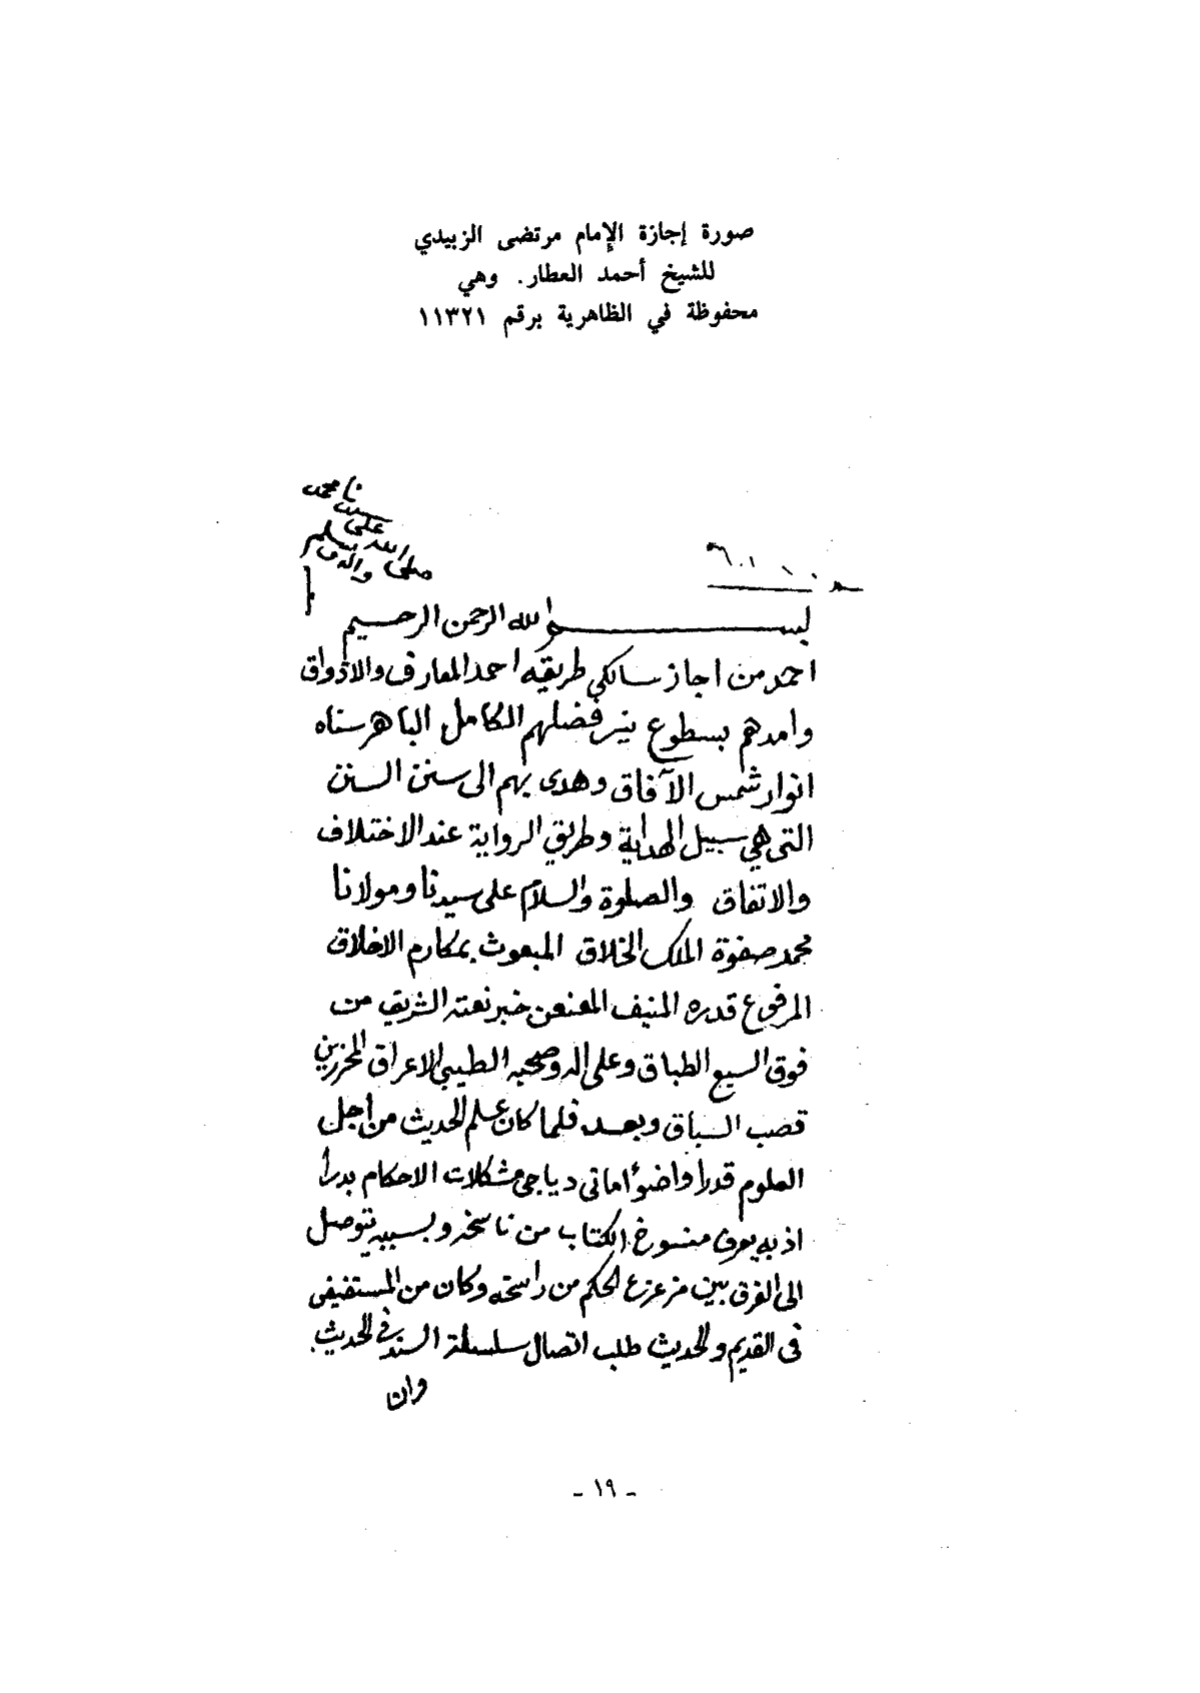 صورة إجازة الإمام مرتضى الزبيدي
للشيخ أحمد العطار. وهي
محفوظة في الظاهرية برقم ١١٣٢١
نا محمد
على
صلى الله
واله وسلم
بسم الله الرحمن الرحيم
احمد من اجاز سالكي طريقه احمد المعارف والاذواق
وامدهم بسطوع نير فضلهم الكامل الباهر سناه
انوار شمس الآفاق وهدى بهم الى سنن السنن
التى هي سبيل الهداية وطريق الرواية عند الاختلاف
والاتفاق والصلوة والسلام على سيدنا ومولانا
محمد صفوة الملك الخلاق المبعوث بمكارم الاخلاق
المرفوع قدره المنيف المعنعن خبر نعته الشريف من
فوق السبع الطباق وعلى اله وصحبه الطيبى الاعراق المحرزين
قصب السباق وبعد فلما كان علم الحديث من اجل
العلوم قدرا واضوأها فى دياجى مشكلات الاحكام بدرا
اذ به يعرف منسوخ الكتاب من ناسخه وبسببه يتوصل
الى الفرق بين مزعزع الحكم من راسخه وكان من المستفيض
فى القديم والحديث طلب اتصال سلسلة السند في الحديث
وان
- ١٩ -